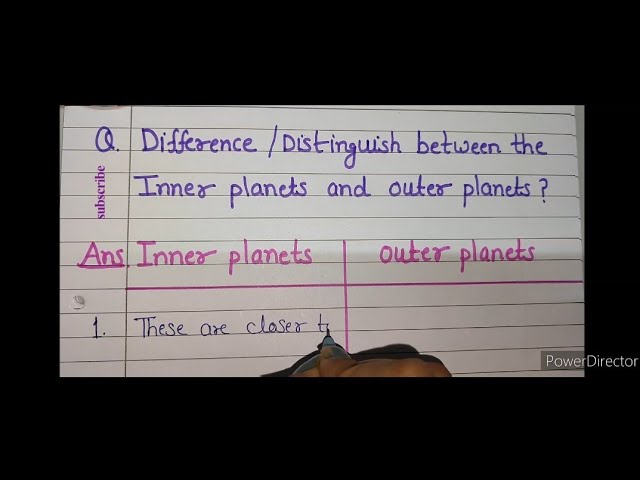 Q. Difference / Distinguish between the
subscribe
Inner planets and outer planets?
Ans Inner planets outer planets
1. These are closer t
PowerDirector